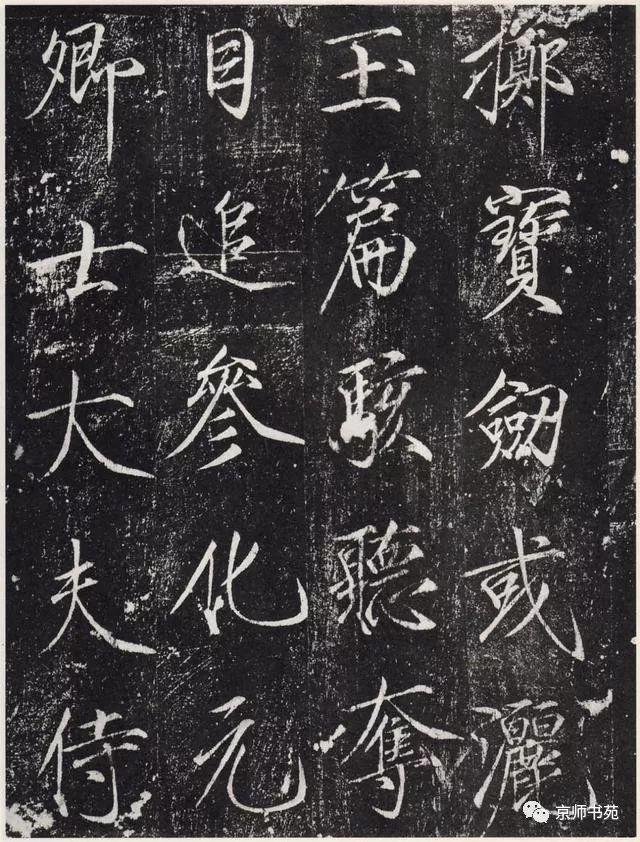 擲寶劔或灑
玉篇駭聽奪
目追參化元
卿士大夫侍
京师书苑